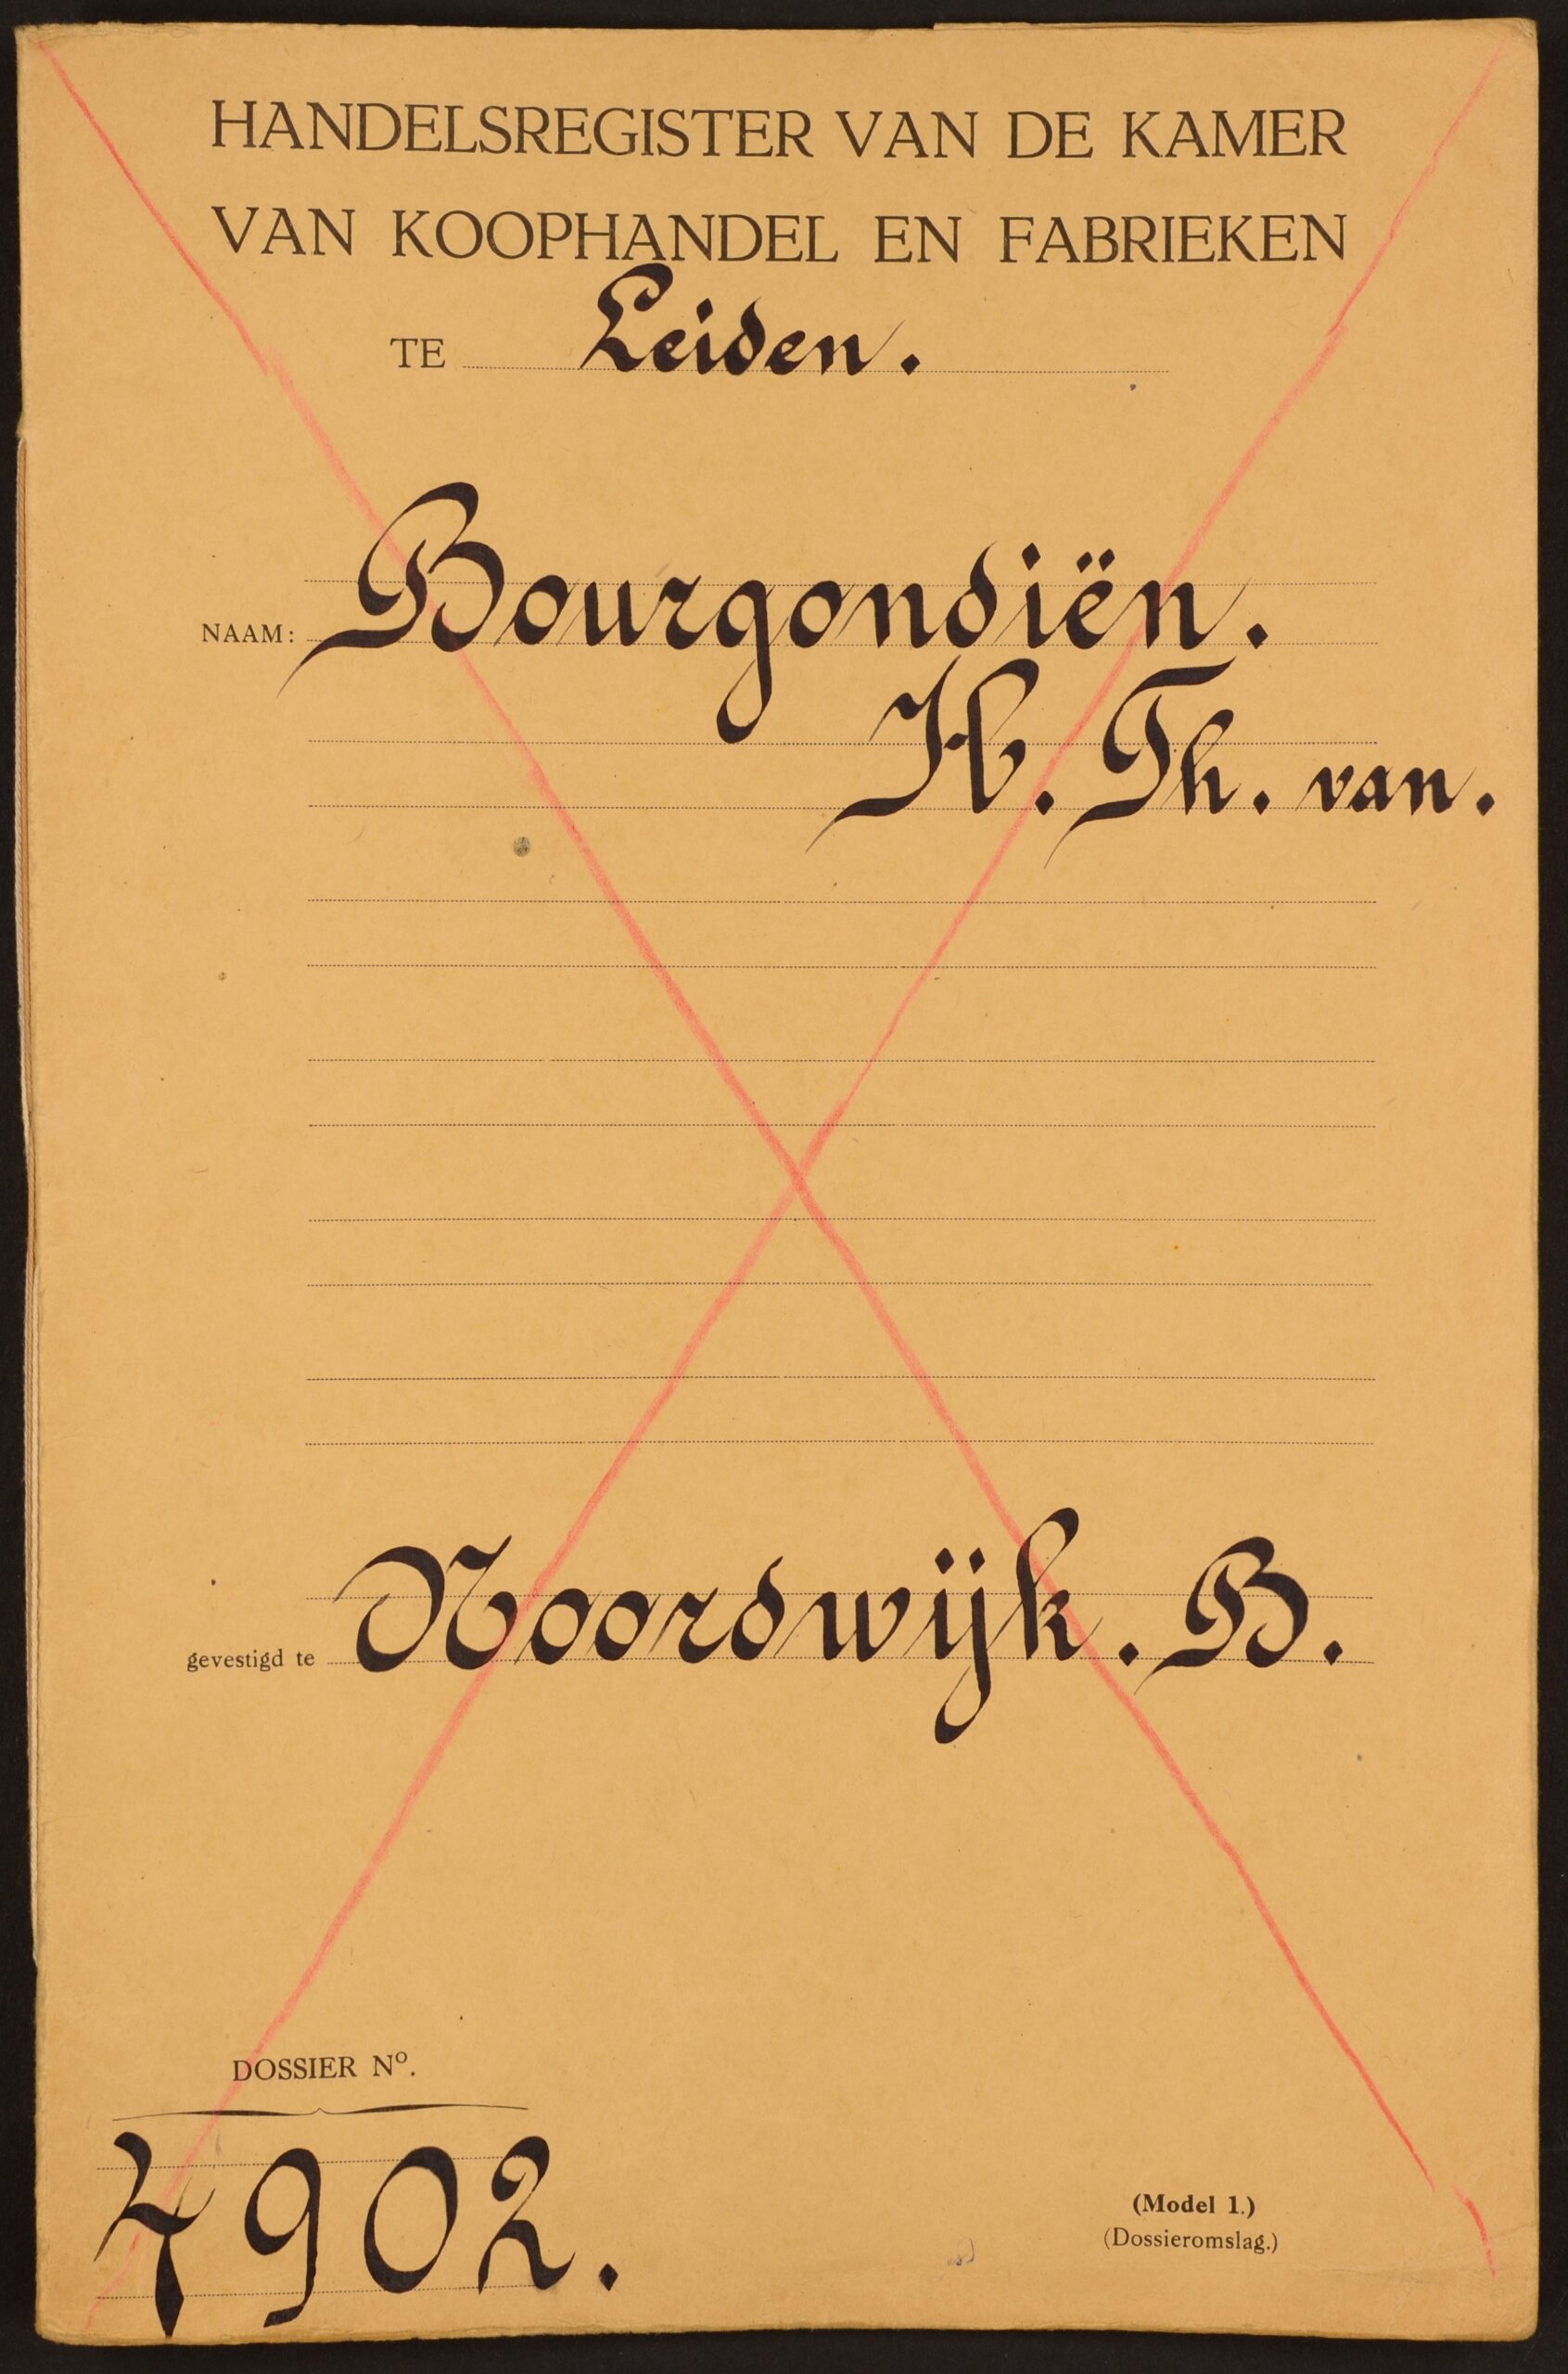 HANDELSREGISTER VAN DE KAMER
VAN KOOPHANDEL EN FABRIEKEN
TE Leiden.
NAAM: Bourgondiën.
H. Th. van.
gevestigd te Noordwijk. B.
DOSSIER Nº.
4902.
(Model 1.)
(Dossieromslag.)